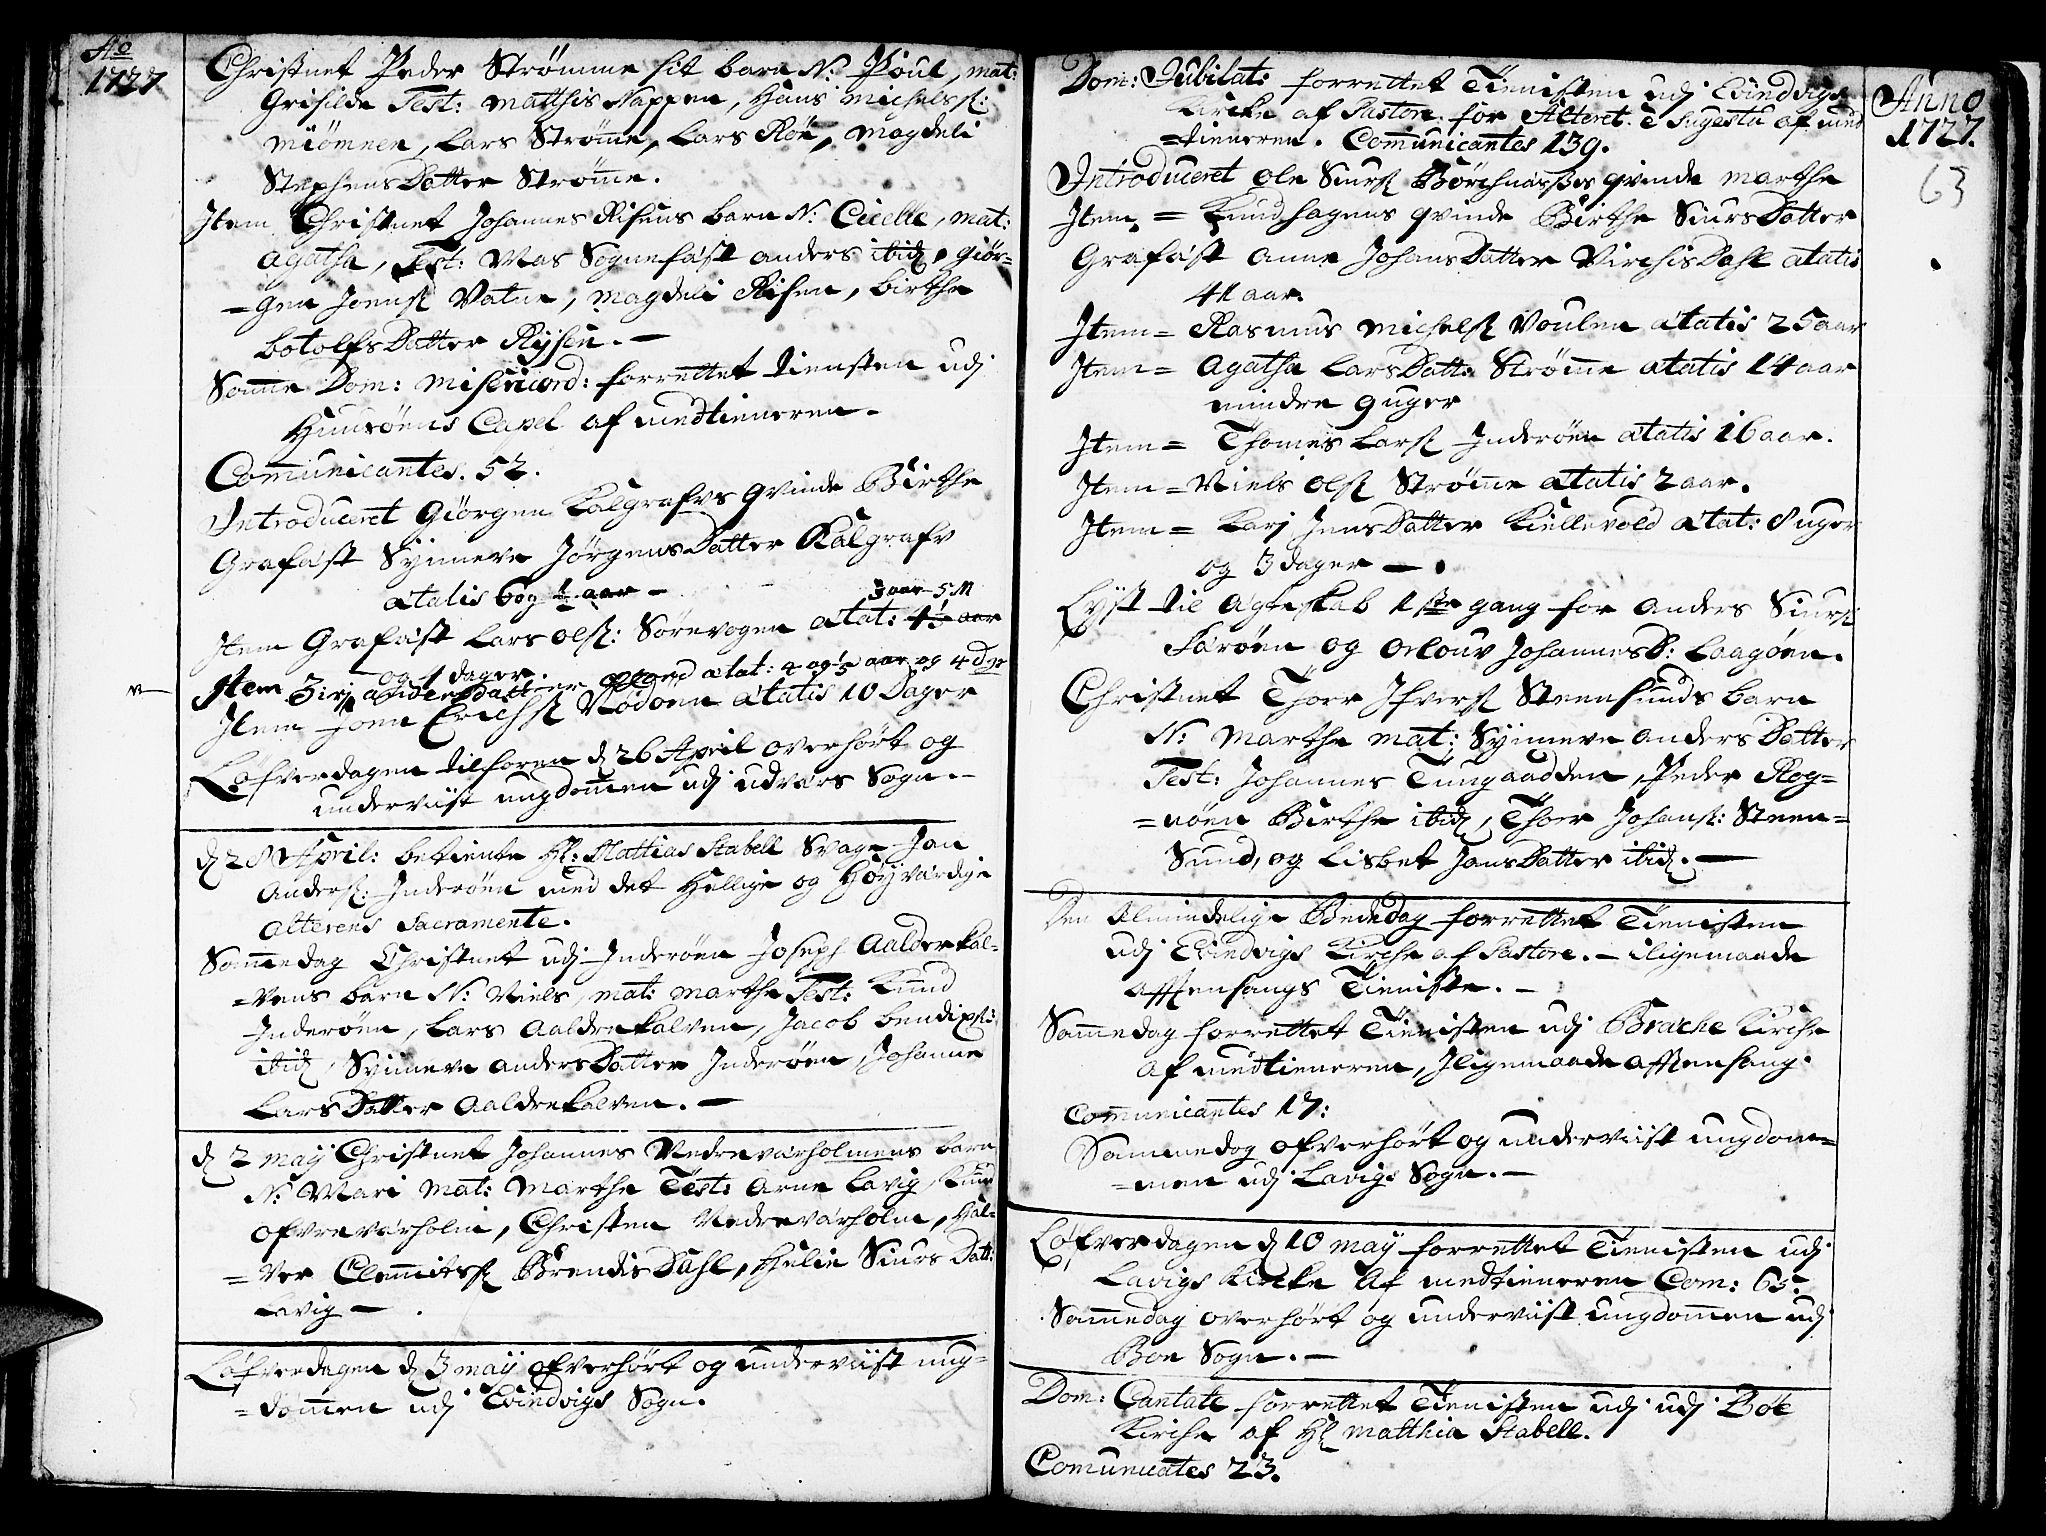 Ao
1727
Christnet Peder Strømme sit barn N: Poul, mat:
Grisilde Test: Matthis Nappen, Hans Michelss:
Miømnen, Lars Strøme, Lars Røn, Magdeli
StephensDatter Strøme.
Item Christnet Johannes Risens barn N: Cicelle, mat:
Agatha, Test: Mas Sognefæst Anders ibid, Giør-
=gen Joenss Vatne, Magdeli Risen, birthe
botolfsDatter Rysen.—
Same Dom: Misericord: forrettet tiensten udj
Huusøens Capel af medtieneren.
Comunicantes. 52.
Introduceret Giørgen Kalgrafvs qvinde Birthe
Grafæst Synneve JørgensDatter Kalgrafv
ætatis 6 og ½ aar —
3 aar 5 M
Item Grafæst Lars olss: Sørevogen ætat: 4½ aar
og 1 dager.
Item andersDatter ætat: 4 og ½ aar og 4 dge
Item Joen Erichss Nødøen ætatis 10 Dager
Løfverdagen tilforen d 26 April overhørt og
underviist ungdomen udj udværs Sogn.—
d 28 April: betiente Hl: Mathias Stabell Svage Jon
Anderss: Inderøen med det Hellige og Høyværdige
Alterens Sacramente.
Samedag Christnet udj Inderøen Joseph Aalderkal-
=vens barn N: Niels, mat: Marthe Test: Knud
Inderøen, Lars Aaldrekalven, Jacob bendixss:
ibid, Synneve AndersDatter Inderøen, Johanne
LarsDatter Aaldrekalven.—
d 2 may Christnet Johannes Nedreværholmens barn
N: Mari mat: Marthe Test: Arne Lavig, Knud
Ofvreværholm, Christen Nedreværholm, Hal-
=ver Clemitss BrendisDahl, Helie Siurs Datt:
Lavig —
Løfverdagen d 3 may ofverhørt og underviist ung-
=domen udj Evindvigs Sogn.
Anno
1727.
63
Dom: Jubilat: forrettet Tienisten udj Evindvigs
Kircke af Pastore for Alteret è Sugestu af med
=tieneren. Comunicantes 139.
Introduceret ole Siurss Børchnæsses qvinde Marthe
Item = Knud hagens qvinde Birthe SiursDatter
Grafæst Anne JohansDatter VirchisDahl ætatis
41 aar.
Item = Rasmus Michelss Voulen ætatis 25 aar
Item = Agatha LarsDatte Strøme ætatis 14 aar
mindre 9 uger
Item = Thomes Larss Inderøen ætatis 16 aar.
Item = Niels olss Strøme ætatis 2 aar.
Item = Karj JensDatter Kiellevold ætat: 8 uger
og 3 dager —.
Lyst til Ægteskab 1ste gang for Anders Siurss
Farøen og Orlouv JohannesD: Laagøen.
Christnet Thoer Ifverss Steensunds barn
N: Marthe mat: Synneve AndersDatter
Test: Johannes Tungaadden, Peder Rog-
=nøen Birthe ibid, Thoer Johanss: Steen-
Sund, og Lisbet JansDatter ibid.—
Den Almindelige Bededag forrettet Tienisten
udj Evindvigs Kirche af Pastore.— iligemaade
Afftensangs Tieniste.—
Samedag forrettet Tienisten udj Bræche Kirche
af medtieneren, Iligemaade Afftensang.
Comunicantes 17:
Sammedag ofverhørt og underviist ungdom-
=men udj Lavigs Sogn.—
Løfverdagen d 10 may forrettet Tienisten udj
Lavigs Kircke af medtieneren Com: 65.
Samedag overhørt og underviist ungdomen udj
Boe Sogn.—
Dom: Cantate forrettet Tienisten udj udj Bøe
Kirche af Hl Matthia Stabell.
Comunicates 23.